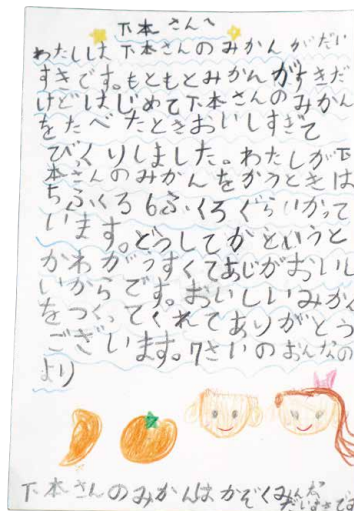 下本さんへ
わたしは下本さんのみかんがだい
すきです。もともとみかんがすきだ
けどはじめて下本さんのみかん
をたべたときおいしすぎて
びくりしました。わたしが下
本さんのみかんをかうときは
ちふくろ6ふくろぐらいかって
います。どうしてかというと
かわがうすくてあじがおいし
いからです。おいしいみかん
をつくってくれてありがとう
ございます。7さいのおんなの
より
下本さんのみかんはかぞくみんな
だいすきです